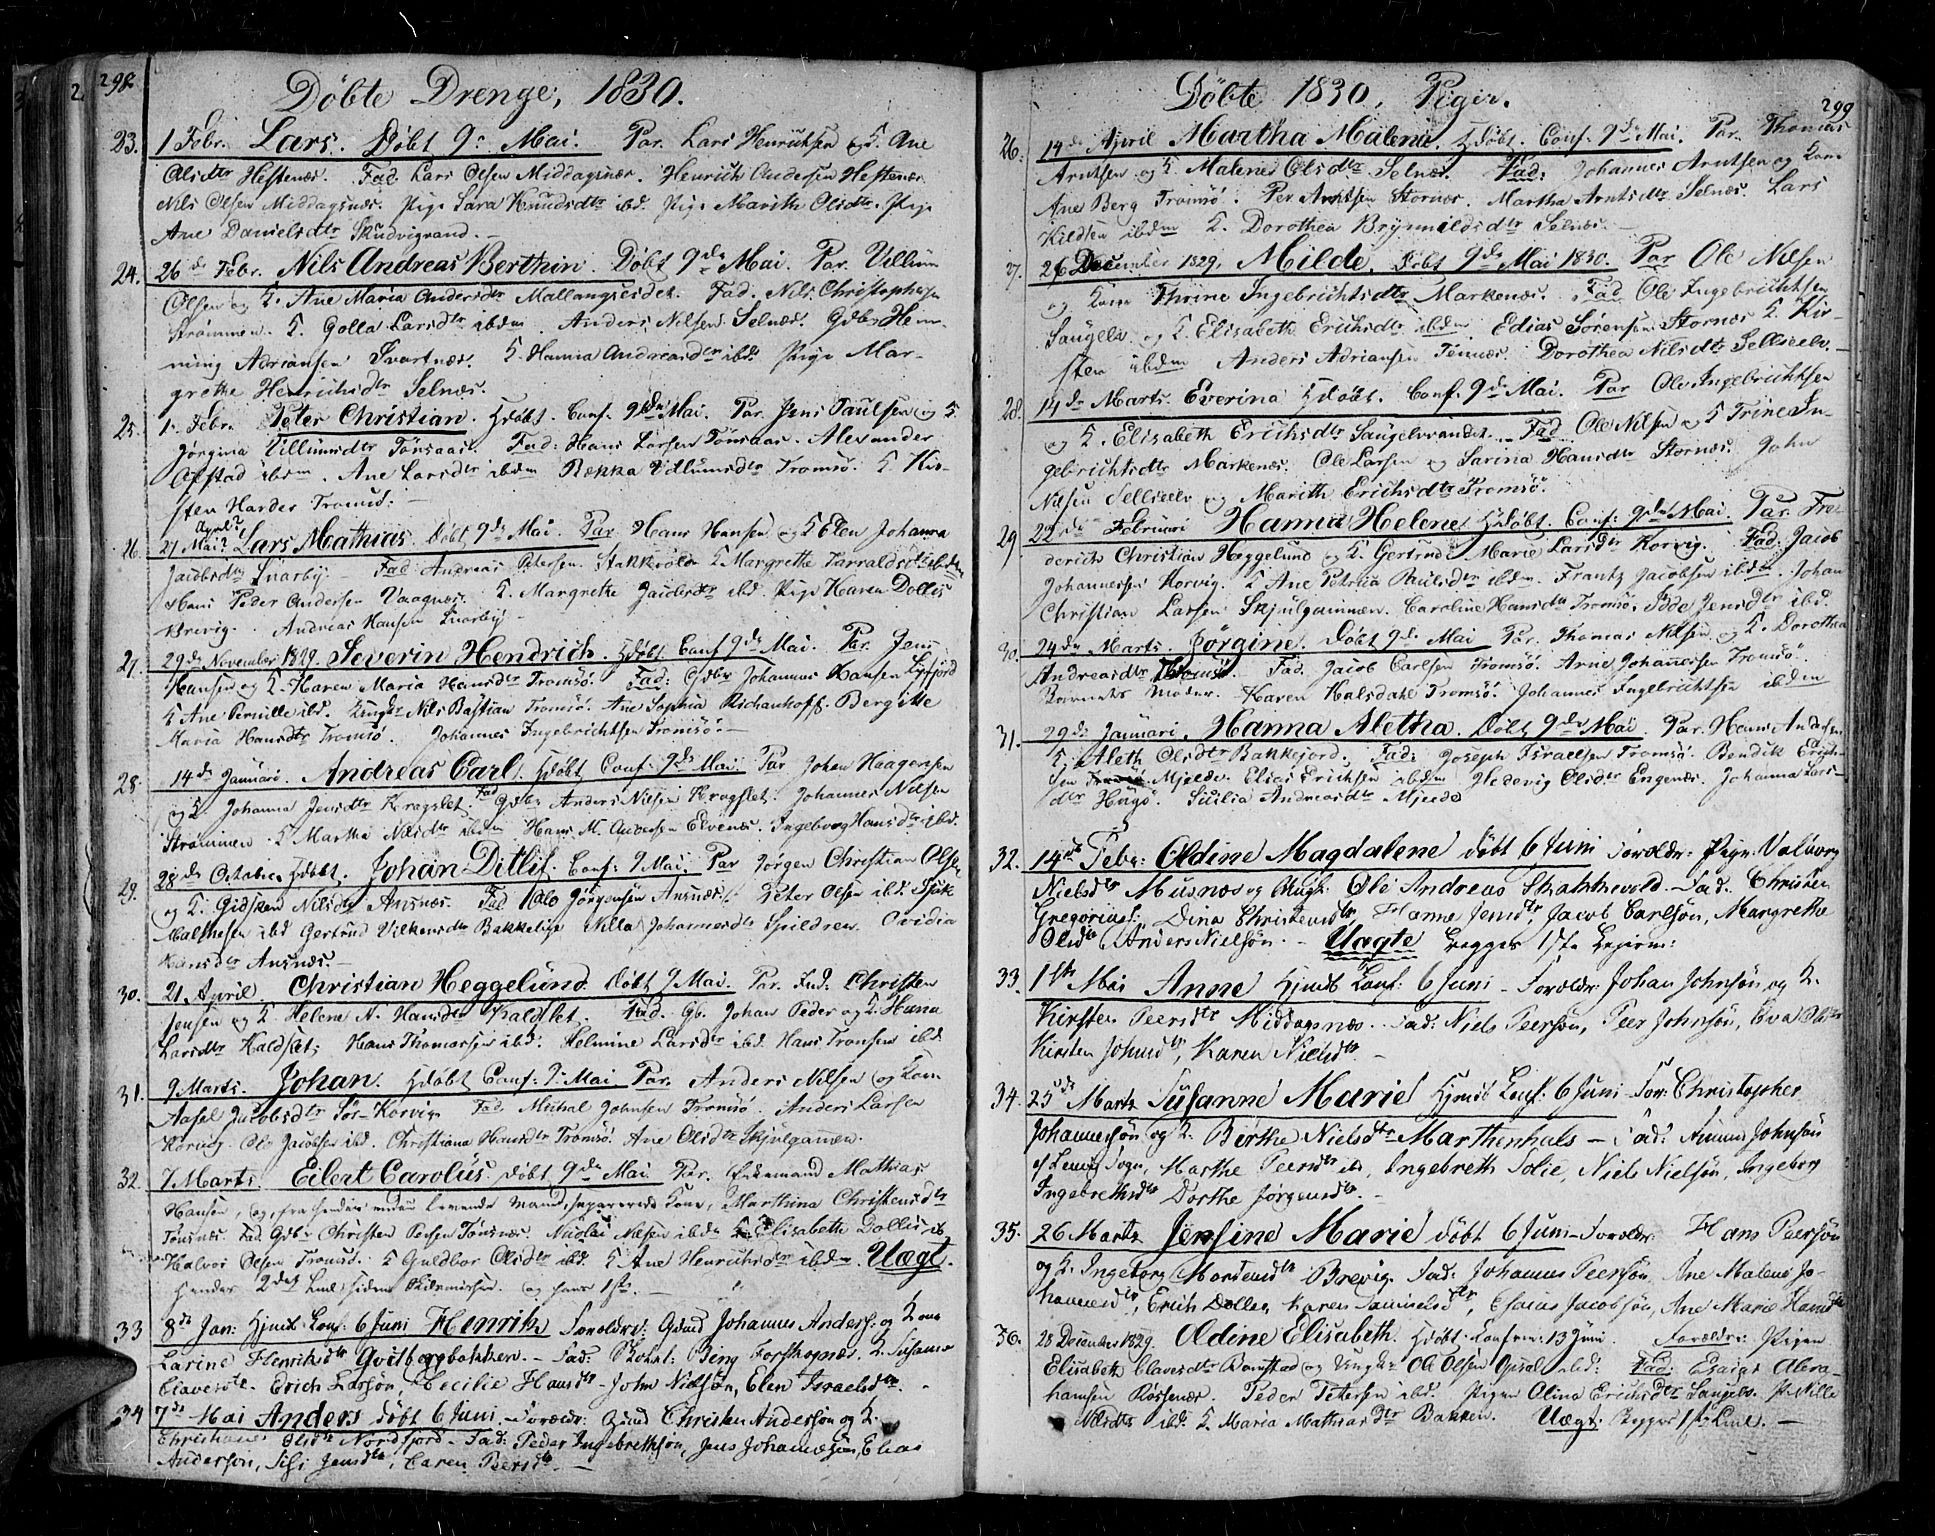 298
Döbte Drenge, 1830.
23. 1 Febr. Lars. Döbt 9de Mai. Par. Lars Henrichsen og K. Ane
Olsdtr Hestenæs. Fad. Lars Olsen Middagsnæs. Henrich Andersen Hestenæs
Nils Olsen Middagsnæs. Pige Sara Knudsdtr ibd. Pige Marith Olsdtr. Pige
Ane Danielsdtr Skudvigrand.
24. 26de Febr. Nils Andreas Berthin. Döbt 9de Mai. Par. Villum
Olsen og K. Ane Maria Andersdtr Mallangseidet. Fad. Nils Christophersen
Strømmen. K. Golla Larsdtr ibdm. Anders Nilsen Selnæs. Gdbr Hem-
ming Adriansen Svartnæs. K. Hanna Andreasdtr ibd. Pige Mar-
grethe Henrichsdtr Selnæs.
25. 1. Febr. Peter Christian. Hdöbt. Conf. 9de Mai. Par. Jens Paulsen og K.
Jørgina Villumsdtr Tønsaas. Fad: Hans Larsen Tønsaas. Alexander
Ofstad ibdm. Ane Larsdtr ibdm Rekka Villumsdtr Tromsö. K. Kir-
sten Harder Tromsö.
26. 27 Mai? April Lars Mathias. Döbt 9de Mai. Par. Hans Hansen og K Elen Johanna
Jacobsdtr Snarby. Fad: Andreas Petersen Stakkvold K Margrethe Harraldsdtr ibdm
Hans Peder Andersen Vaagnæs. K. Margrethe Zaidesdtr ibd. Pige Karen Dollis
Brevig. Andreas Hansen Snarby.
27. 29de November 1829. Severin Hendrich. Hdöbt Conf 9de Mai. Par. Jens
Hansen og K. Karen Maria Hansdtr Tromsö. Fad: Gdbr Johannes Hansen
K Ane Pernille ibd. Ungkr Nils Bastian Tromsö. Ane Sophia Richanhoff. Bergitte
Maria Hansdtr Tromsö. Johannes Ingebrichtsen Tromsö.
28. 14de Januari. Andreas Carl. Hdöbt Conf: 9de Mai. Par Johan Haagensen
og K. Johanna Jensdtr Kragslet. Fad Gdbr Anders Nilsen Kragslet. Johannes Nilsen
Strømmen K Martha Nilsdtr ibdm Hans M. Andersen Elvenæs. Ingeborg Hansdtr ibd.
29. 28de Octobr. Hdöbt. Johan Ditlif. Conf: 9 Mai. Par Jörgen Christian Olsen
og K. Gidsken Nilsdtr Ansnæs. Fad Ole Jörgensen Ansnæs. Peter Olsen ibd.
Malmesen ibd Gertrud Vilkensdtr Bakkelige Nilla Johannesdtr Spildren. Ovidia
Hansdtr Ansnæs.
30. 21. April. Christian Heggelund. Döbt 9 Mai. Par. Ind. Christen
Jensen og K. Helene A. Hansdtr Kaldslet. Fad. Gb. Johan Peder og K. Hanna
Larsdtr Kaldslet. Hans Thomassen ibd. Helmine Larsdtr ibd. Hans Tronsen ibd
31. 9 Marts. Johan. Hdöbt Conf: 9. Mai Par. Anders Nilsen og Kone
Aasel Jacobsdtr Sör-Korvig. Fad Michal Johnsen Tromsö. Anders Larsen
Korvig. Ole Jacobsen ibd. Christiana Hansdtr Tromsö. Ane Olsdtr Skjulgamnen.
32. 7 Marts. Eilert Carolus. Döbt 9de Mai Par. Enkemand Mathias
Hansen, og, fra hendes endnu levende Mand, separerede Kone, Marthina Christensdtr
Tønsnæs. Fad. Gdbr Christen Povlsen Tønsnæs. Nicolai Nilsen ibdm K. Elisabeth Dollis ib.
Halvor Olsen Tromsö. K Guldbor Olsdtr ibd. K Ane Henrichsdtr ibdm. Uægt.
hendes 2det Leiermaal siden Skilsmissen. og hans 1ste.
33 8de Jan: Hjemdt Conf: 6 Juni Henrik Forældre: Gmd Johannes Anders: og Kone
Larine Henriksdtr Qvitbergbakken. Fad: Bing Forsthognæs, K. Susanna
Clavesdtr. Erich Larsön, Cecilie Hansdtr John Nielsön, Elen Israelsdtr.
34 7de Mai Anders döbt 6 Juni. Forældr: Gmd Christen Andersön og K.
Christiane Olsdtr Nordfjord. Fad: Peder Ingebrethsön, Jens Johannesön, Elias
Andersön, Sissi Jensdtr, Caren Peersdtr.
299
Döbte 1830. Piger.
26. 14de April Martha Malene. Hdöbt. Conf. 9de Mai. Par. Thomas
Arntsen og K. Malene Olsdtr Selnæs. Fad: Johannes Arntsen og Kone
Ane Berg Tromsö. Per Arntsen Stornæs. Martha Arntsdtr Selnæs. Lars
Kildsen ibdm K. Dorothea Brynnildsdtr Selnæs.
27. 26 December 1829. Milde. Döbt 9de Mai 1830. Par Ole Nilsen
og Kone Thrine Ingebrichtsdtr Markenæs. Fad Ole Ingebrichtsen
Saugelv og K. Elisabeth Erichsdtr ibdm Edias Sörensen Stornæs K Kir-
sten ibdm Anders Adriansen Tennæs. Dorothea Nilsdtr Sellseelv.
28. 14de Marts. Everina Hdöbt. Conf. 9de Mai. Par Ole Ingebrichtsen
og K. Elisabeth Erichsdtr Saugelvandet. Fad Ole Nilsen og K Trine In-
gebrichtsdtr Markenæs. Ole Larsen og Sarina Hansdtr Stornæs. John
Nilsen Sellseelv og Marith Erichsdtr Tromsö.
29 22de Februari Hanna Helene. Hdöbt. Conf: 9de Mai. Par. Fre-
derich Christian Heggelund og K. Gertrud Marie Larsdtr Korvig. Fad: Jacob
Johannesen Korvig. K Ane Petrica Paulsdtr ibdm. Frantz Jacobsen ibdm. Johan
Christian Larsen Skjulgamnen. Caroline Hansdtr Tromsö. Jensdtr ibd.
30. 24de Marts. Jörgine. Döbt 9de Mai Par. Thomas Nilsen og K. Dorothea
Andreasdtr Tromsö. Fad. Jacob Carlsen Tromsö. Arne Johannesen Tromsö.
Barnets Moder. Karen Halsdahl Tromsö. Johannes Ingebrichtsen ibdm
31. 29de Januari. Hanna Aletha. Döbt 9de Mai Par. Hans Andersen
K. Aleth Olsdtr Bakkejord. Fad: Joseph Israelsen Tromsö. Bendik Erich-
sen Mjelde. Elias Erichsen ibdm Hedevig Olsdtr Engenæs. Johanna Lars-
dtr Sicilia Andreasdtr Mjelde
32. 14de Febr: Oldine Magdalene döbt 6 Juni Forældr: Pigen Valborg
Nielsdtr Musnæs og Ungk: Ole Andreas Skathevold. Fad: Christen
Gregorius: Dina Christensdtr, Hanne Jensdtr, Jacob Carlsön, Margrethe
Olsdtr Anders Nielsön. Uægte begges 1ste Leierm:
33. 1ste Mai Anne Hjemdt Conf: 6 Juni Forældr: Johan Johnsön, og K.
Kirsten Peersdtr Middagsnæs. Fad: Niels Peersön, Peer Johnsön, Eva Olsdtr
Kirsten Johnsdtr, Karen Nielsdtr.
34. 25de Martz Susanne Marie Hjemdt Conf: 6 Juni For: Christopher
Johannesön og K. Birthe Nielsdtr Marthenhals Fad: Amund Johnsön
af Lenvig Sogn, Marthe Peersdtr ibd, Ingebreth Solie, Niels Nielsön, Ingeborg
Ingebrethsdtr Dorthe Jörgensdtr.
35. 26 Martz Jensine Marie döbt 6 Juni Forældr: Hans Peersön
og K. Ingeborg Mortensdtr Brevig. Fad: Johannes Peersön, Ane Malene Jo-
hannesdtr, Erich Dollen, Karen Samuelsdtr, Esaias Jacobsön, Ane Marie Hansdtr
36. 28 December 1829. Oldine Elisabeth. Hdöbt. Confirm: 13 Juni. Forældre: Pigen
Elisabeth Clavesdtr Ramstad og Ungkr: Ole Olsen Opsal ibd: Fad: Esaias Abra-
hamsen Røssenæs. Peder Petersen ibd. Pigen Olina Erichsdtr Saugelv. P. Nille
Nilsdtr ibd: K Maria Mathiasdtr Bakken. Uægt: Begges 1ste Leiel.